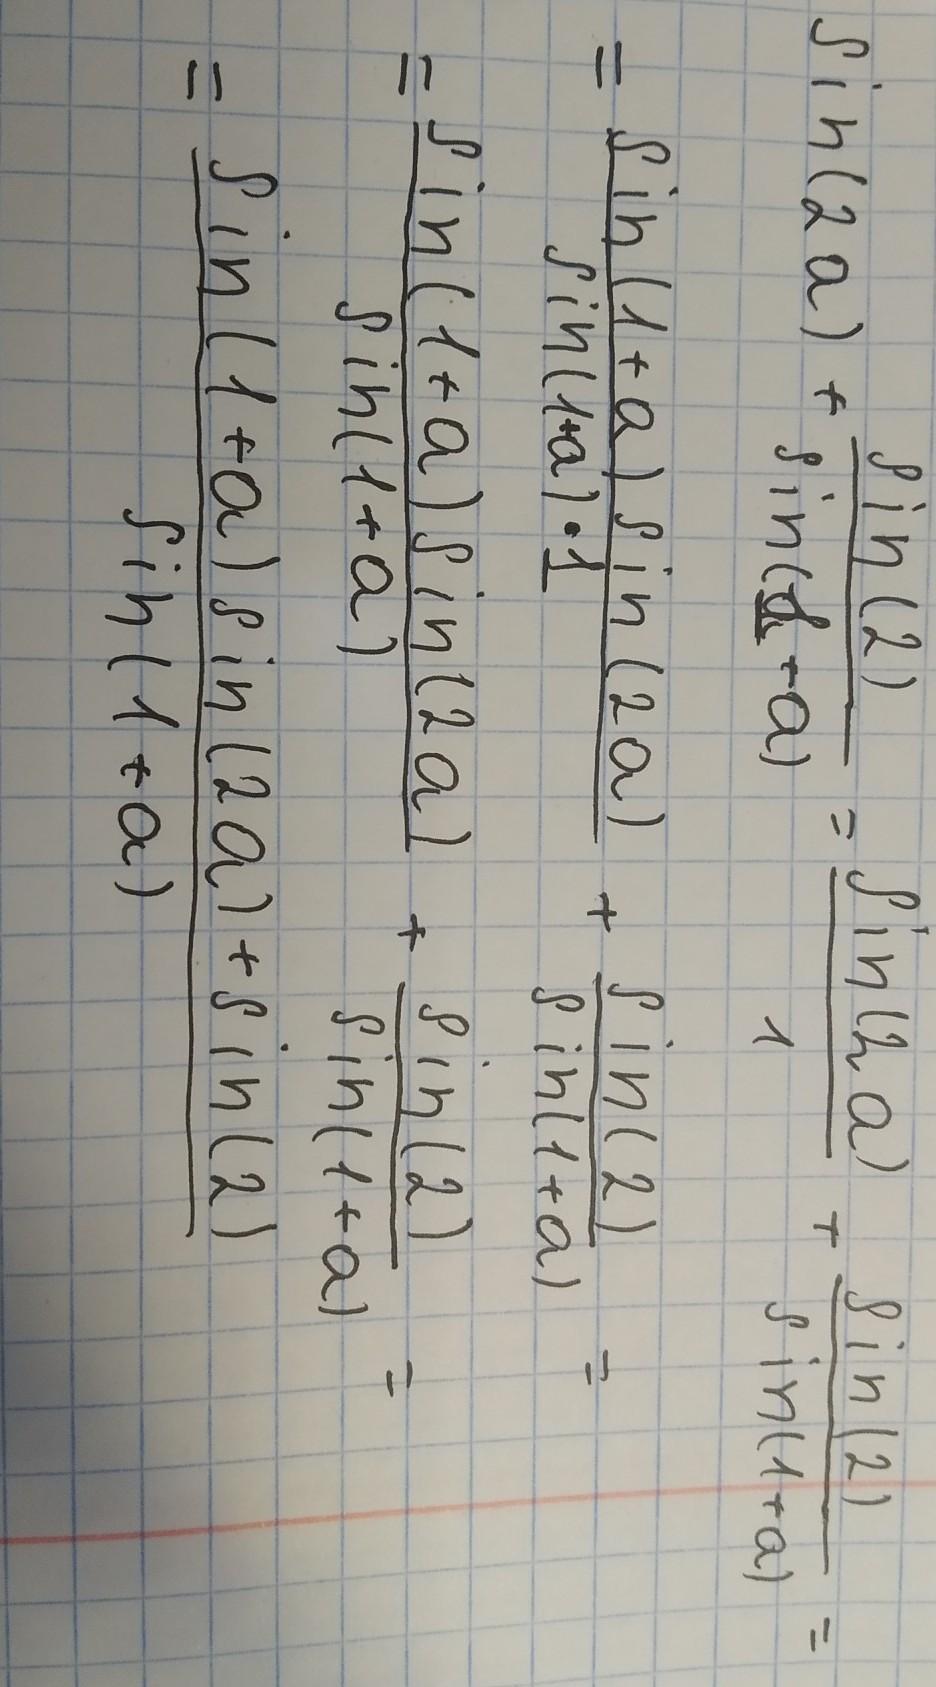 sin(2a) + sin(2)/sin(1+a) = sin(2a)/1 + sin(2)/sin(1+a) =
= sin(1+a)sin(2a)/sin(1+a)·1 + sin(2)/sin(1+a) =
= sin(1+a)sin(2a)/sin(1+a) + sin(2)/sin(1+a) =
= sin(1+a)sin(2a)+sin(2)/sin(1+a)